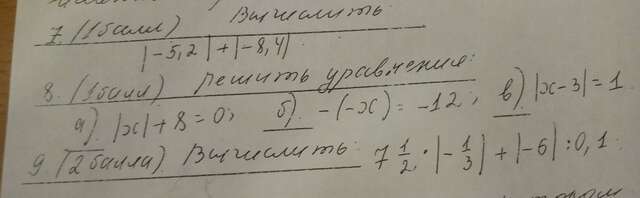 7. (1 балл) Вычислить:
|-5,2|+|-8,4|
8. (1 балл) Решить уравнения:
а). |x|+8=0; б). -(-x)=-12; в) |x-3|=1
9. (2 балла). Вычислить: 7 1/2 · |-1/3| + |-6| : 0,1.